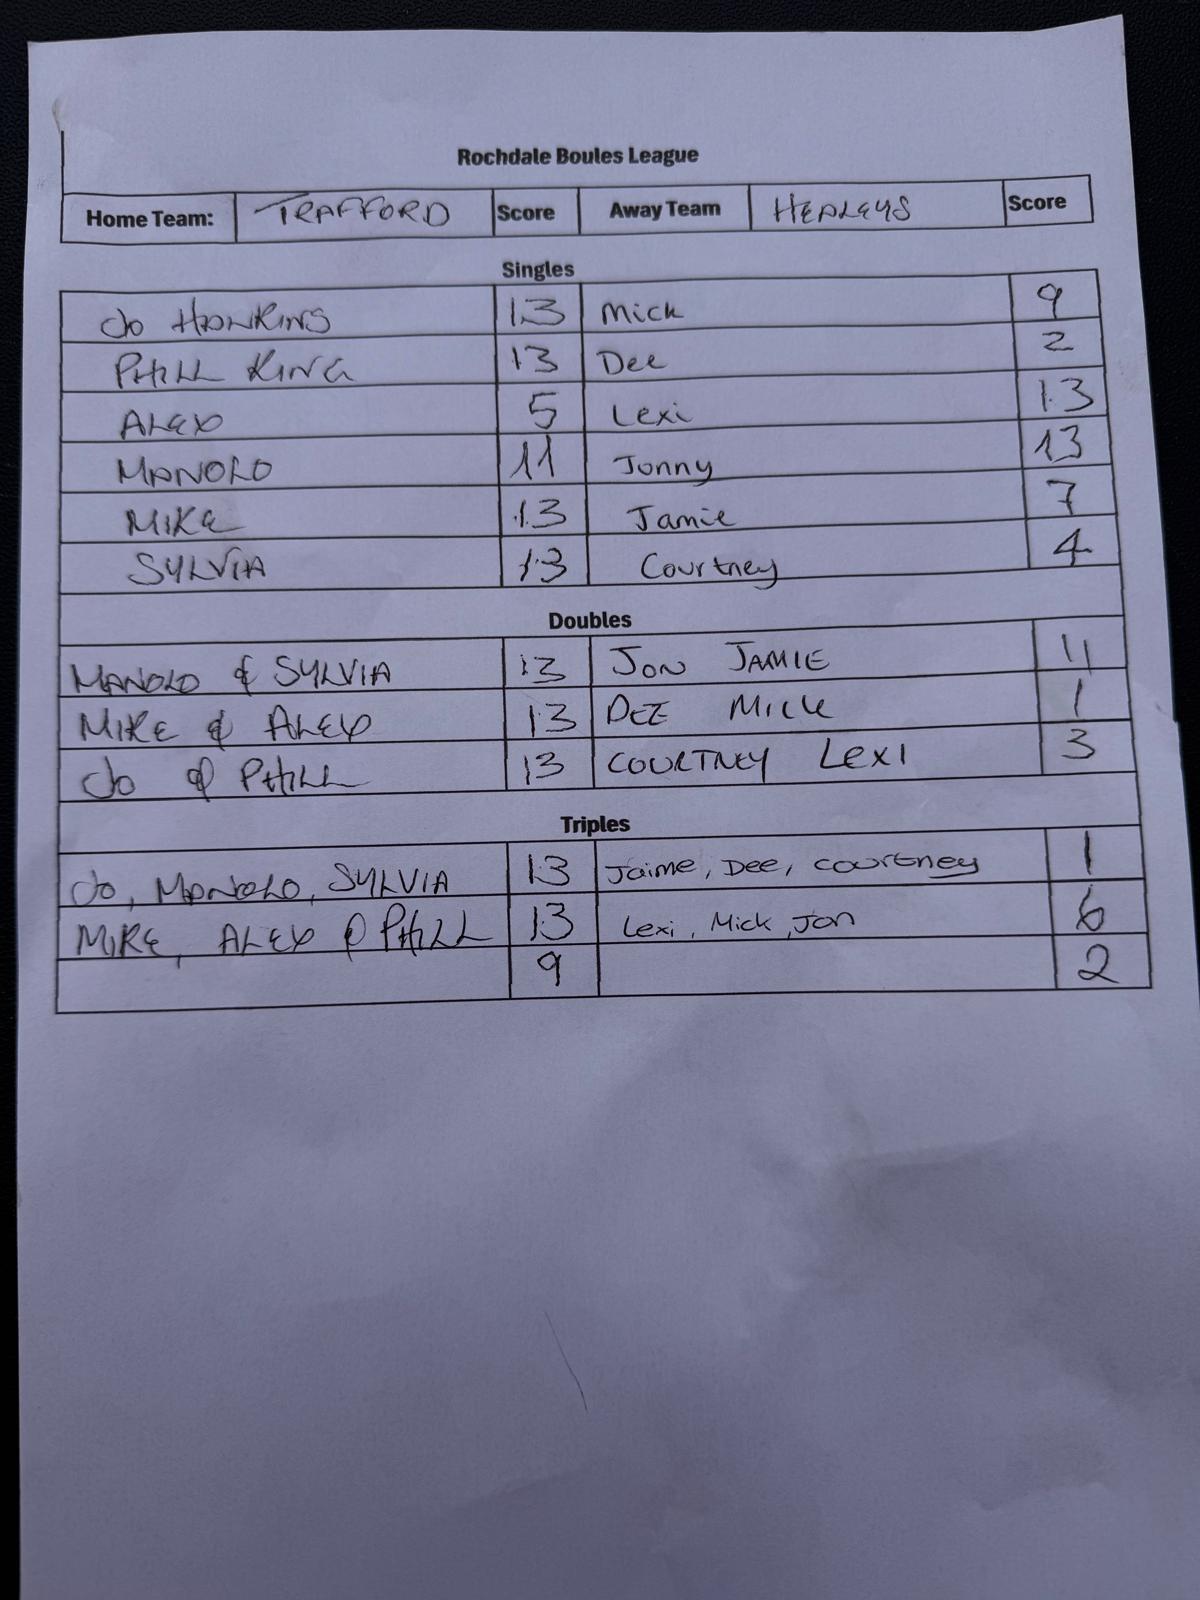 Rochdale Boules League
Home Team: TRAFFORD Score Away Team HEALEYS Score
Singles
Jo HAWKINS 13 Mick 9
PHILL KING 13 Dee 2
ALEX 5 Lexi 13
MANOLO 11 Jonny 13
MIKE 13 Jamie 7
SYLVIA 13 Courtney 4
Doubles
MANOLO & SYLVIA 13 JON JAMIE 11
MIKE & ALEX 13 DEE MICK 1
Jo & PHILL 13 COURTNEY LEXI 3
Triples
Jo, MANOLO, SYLVIA 13 Jaime, Dee, courtney 1
MIKE, ALEX & PHILL 13 Lexi, Mick, Jon 6
9 2